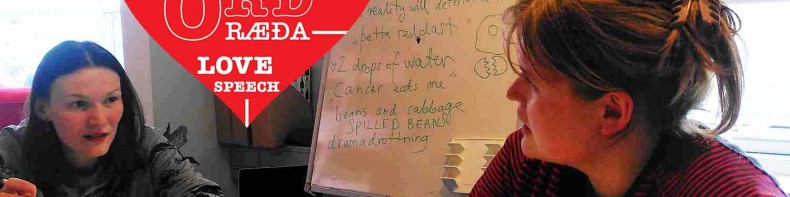 ORÐ
RÆÐA
LOVE
SPEECH
reality will determine
"þetta reddast"
2 drops of water
Cancer eats me"
"beans and cabbage
SPILLED BEANS
dramadrottning